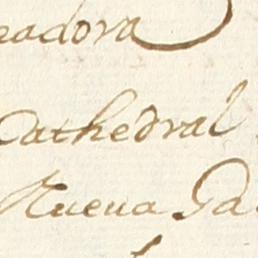 eadora
Cathedral
Nueua Ga